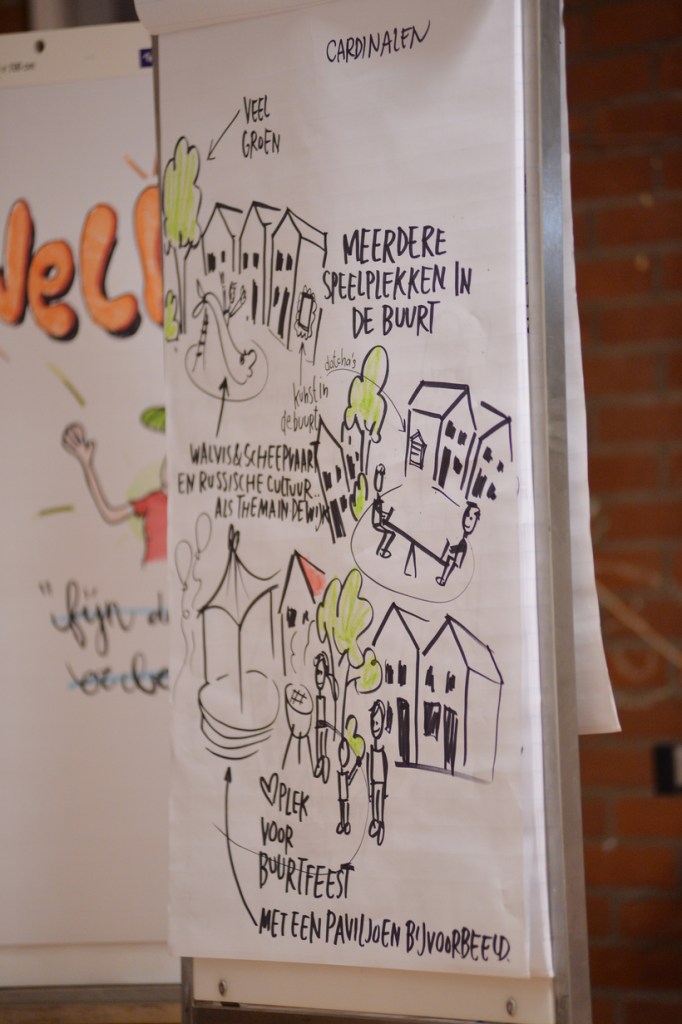 CARDINALEN
VEEL
GROEN
MEERDERE
SPEELPLEKKEN IN
DE BUURT
datcha's
kunst in
de buurt
WALVIS & SCHEEPVAART
EN RUSSISCHE CULTUUR..
ALS THEMA IN DE WIJK
♡PLEK
VOOR
BUURTFEEST
MET EEN PAVILJOEN BIJVOORBEELD.
"fijn